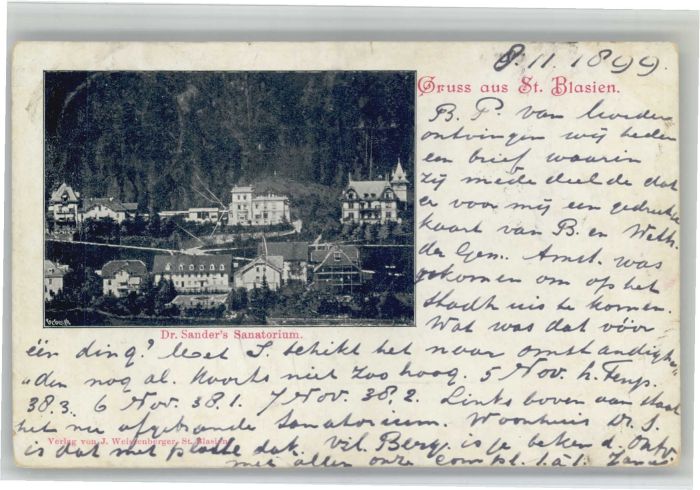 8.11.1899.
Gruss aus St. Blasien.
B. P. van
ontvingen wij heden
een brief waarin
zij mededeelde dat
er voor mij een gedrukte
kaart van B. en Weth.
der Gem. Amst. was
gekomen om op het
Stadhuis te komen.
Wat was dat vóór
Dr. Sander's Sanatorium.
één ding? Met S schikt het naar omstandighe
"den nog al. Koorts niet zoo hoog. 5 Nov. h. Temp.
38.3. 6 Nov. 38.1. 7 Nov. 38.2. Links boven aan staat
het nu afgebrande Sanatorium. Woonhuis Dr. S.
Verlag von J. Weissenberger, St. Blasien
is dat met platte dak. Vil. Berg. is je beken d. Ontv.
met allen onze compl.